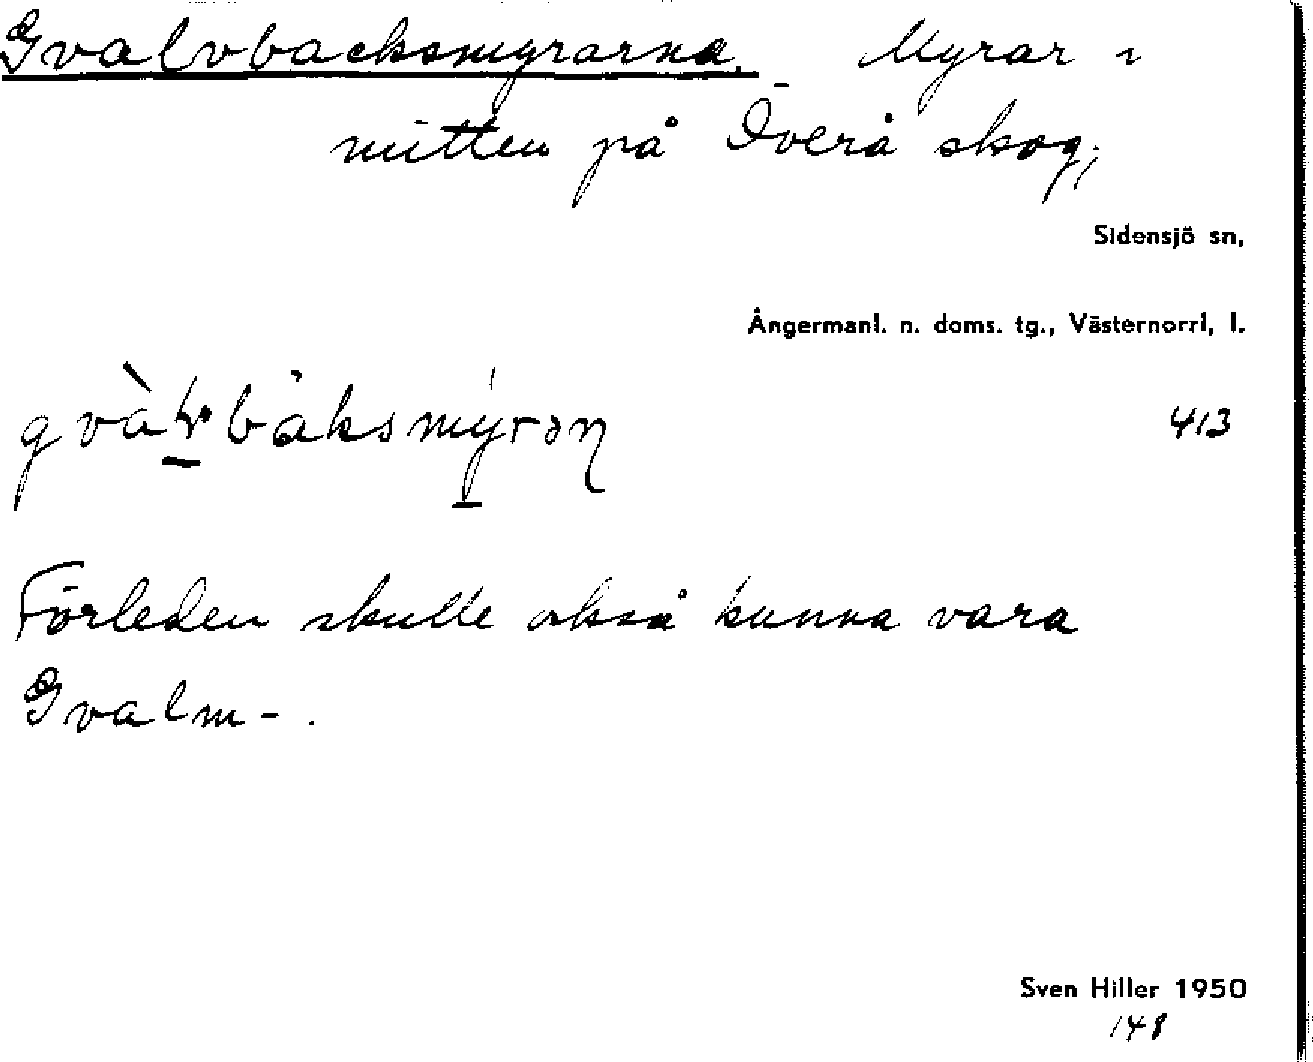 Gvalvbacksmyrarna. Myrar i
mitten på Överå skog;
Sidensjö sn,
Ångermanl. n. doms. tg., Västernorrl. l.
413
Förleden skulle också kunna vara
Gvalm-.
Sven Hiller 1950
148